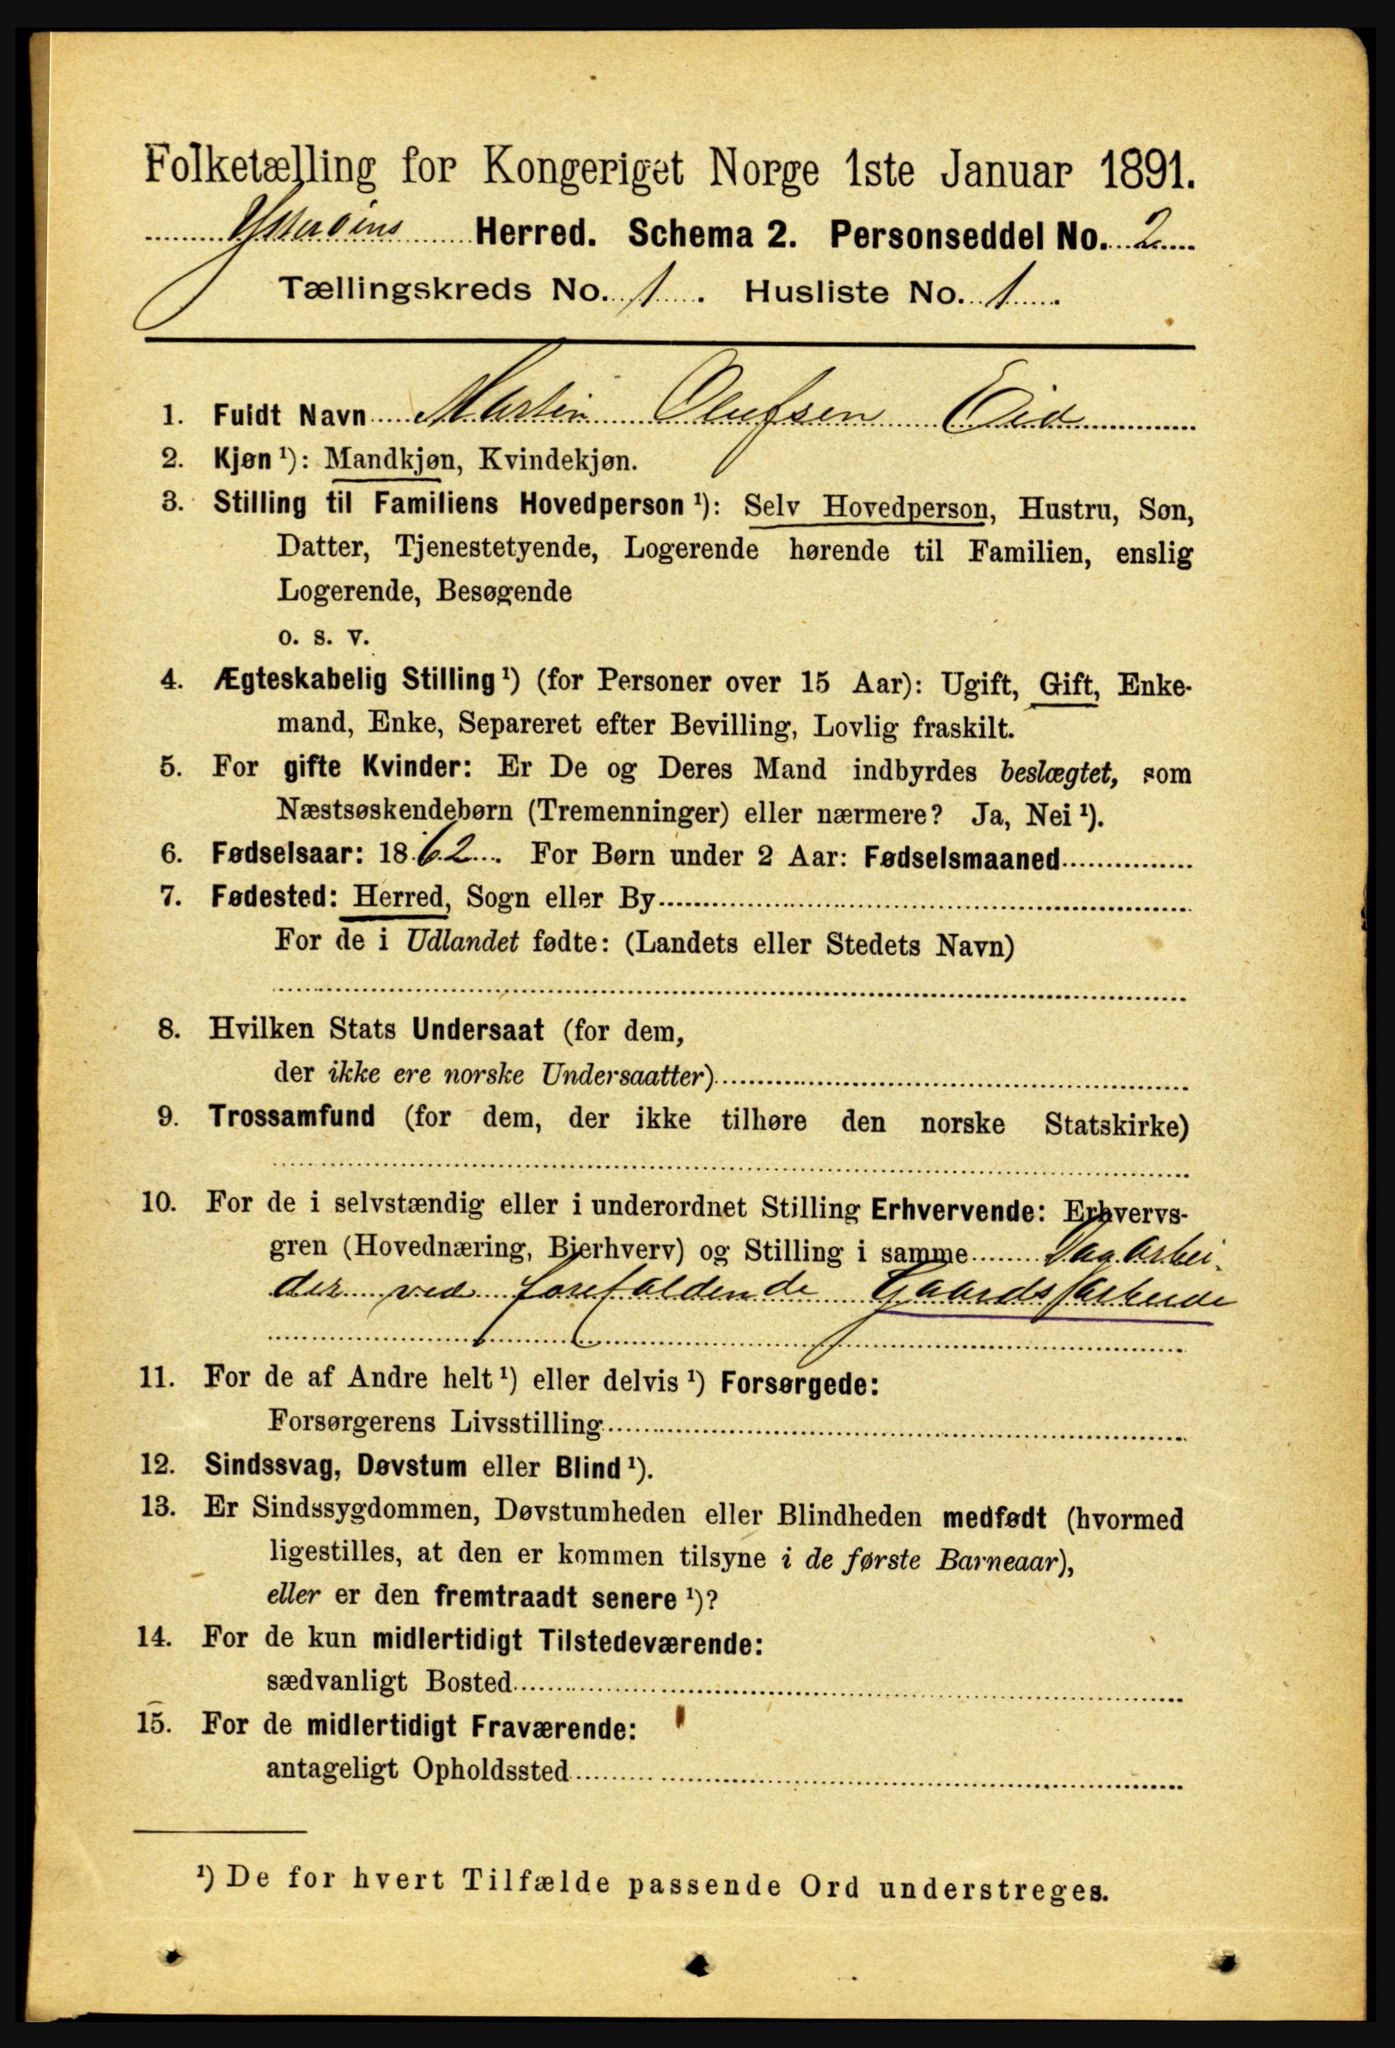 Folketælling for Kongeriget Norge 1ste Januar 1891.
Ytterøens Herred. Schema 2. Personseddel No. 2
Tællingskreds No. 1. Husliste No. 1.
1. Fuldt Navn Martin Olufsen Eid
2. Kjøn ¹): Mandkjøn, Kvindekjøn.
3. Stilling til Familiens Hovedperson ¹): Selv Hovedperson, Hustru, Søn,
Datter, Tjenestetyende, Logerende hørende til Familien, enslig
Logerende, Besøgende
o. s. v.
4. Ægteskabelig Stilling ¹) (for Personer over 15 Aar): Ugift, Gift, Enke-
mand, Enke, Separeret efter Bevilling, Lovlig fraskilt.
5. For gifte Kvinder: Er De og Deres Mand indbyrdes beslægtet, som
Næstsøskendebørn (Tremenninger) eller nærmere? Ja, Nei ¹).
6. Fødselsaar: 1862. For Børn under 2 Aar: Fødselsmaaned
7. Fødested: Herred, Sogn eller By
For de i Udlandet fødte: (Landets eller Stedets Navn)
8. Hvilken Stats Undersaat (for dem,
der ikke ere norske Undersaatter)
9. Trossamfund (for dem, der ikke tilhøre den norske Statskirke)
10. For de i selvstændig eller i underordnet Stilling Erhvervende: Erhvervs-
gren (Hovednæring, Bierhverv) og Stilling i samme Dagarbei-
der ved forefaldende Gaardsarbeide
11. For de af Andre helt ¹) eller delvis ¹) Forsørgede:
Forsørgerens Livsstilling
12. Sindssvag, Døvstum eller Blind ¹).
13. Er Sindssygdommen, Døvstumheden eller Blindheden medfødt (hvormed
ligestilles, at den er kommen tilsyne i de første Barneaar),
eller er den fremtraadt senere ¹)?
14. For de kun midlertidigt Tilstedeværende:
sædvanligt Bosted
15. For de midlertidigt Fraværende:
antageligt Opholdssted
¹) De for hvert Tilfælde passende Ord understreges.